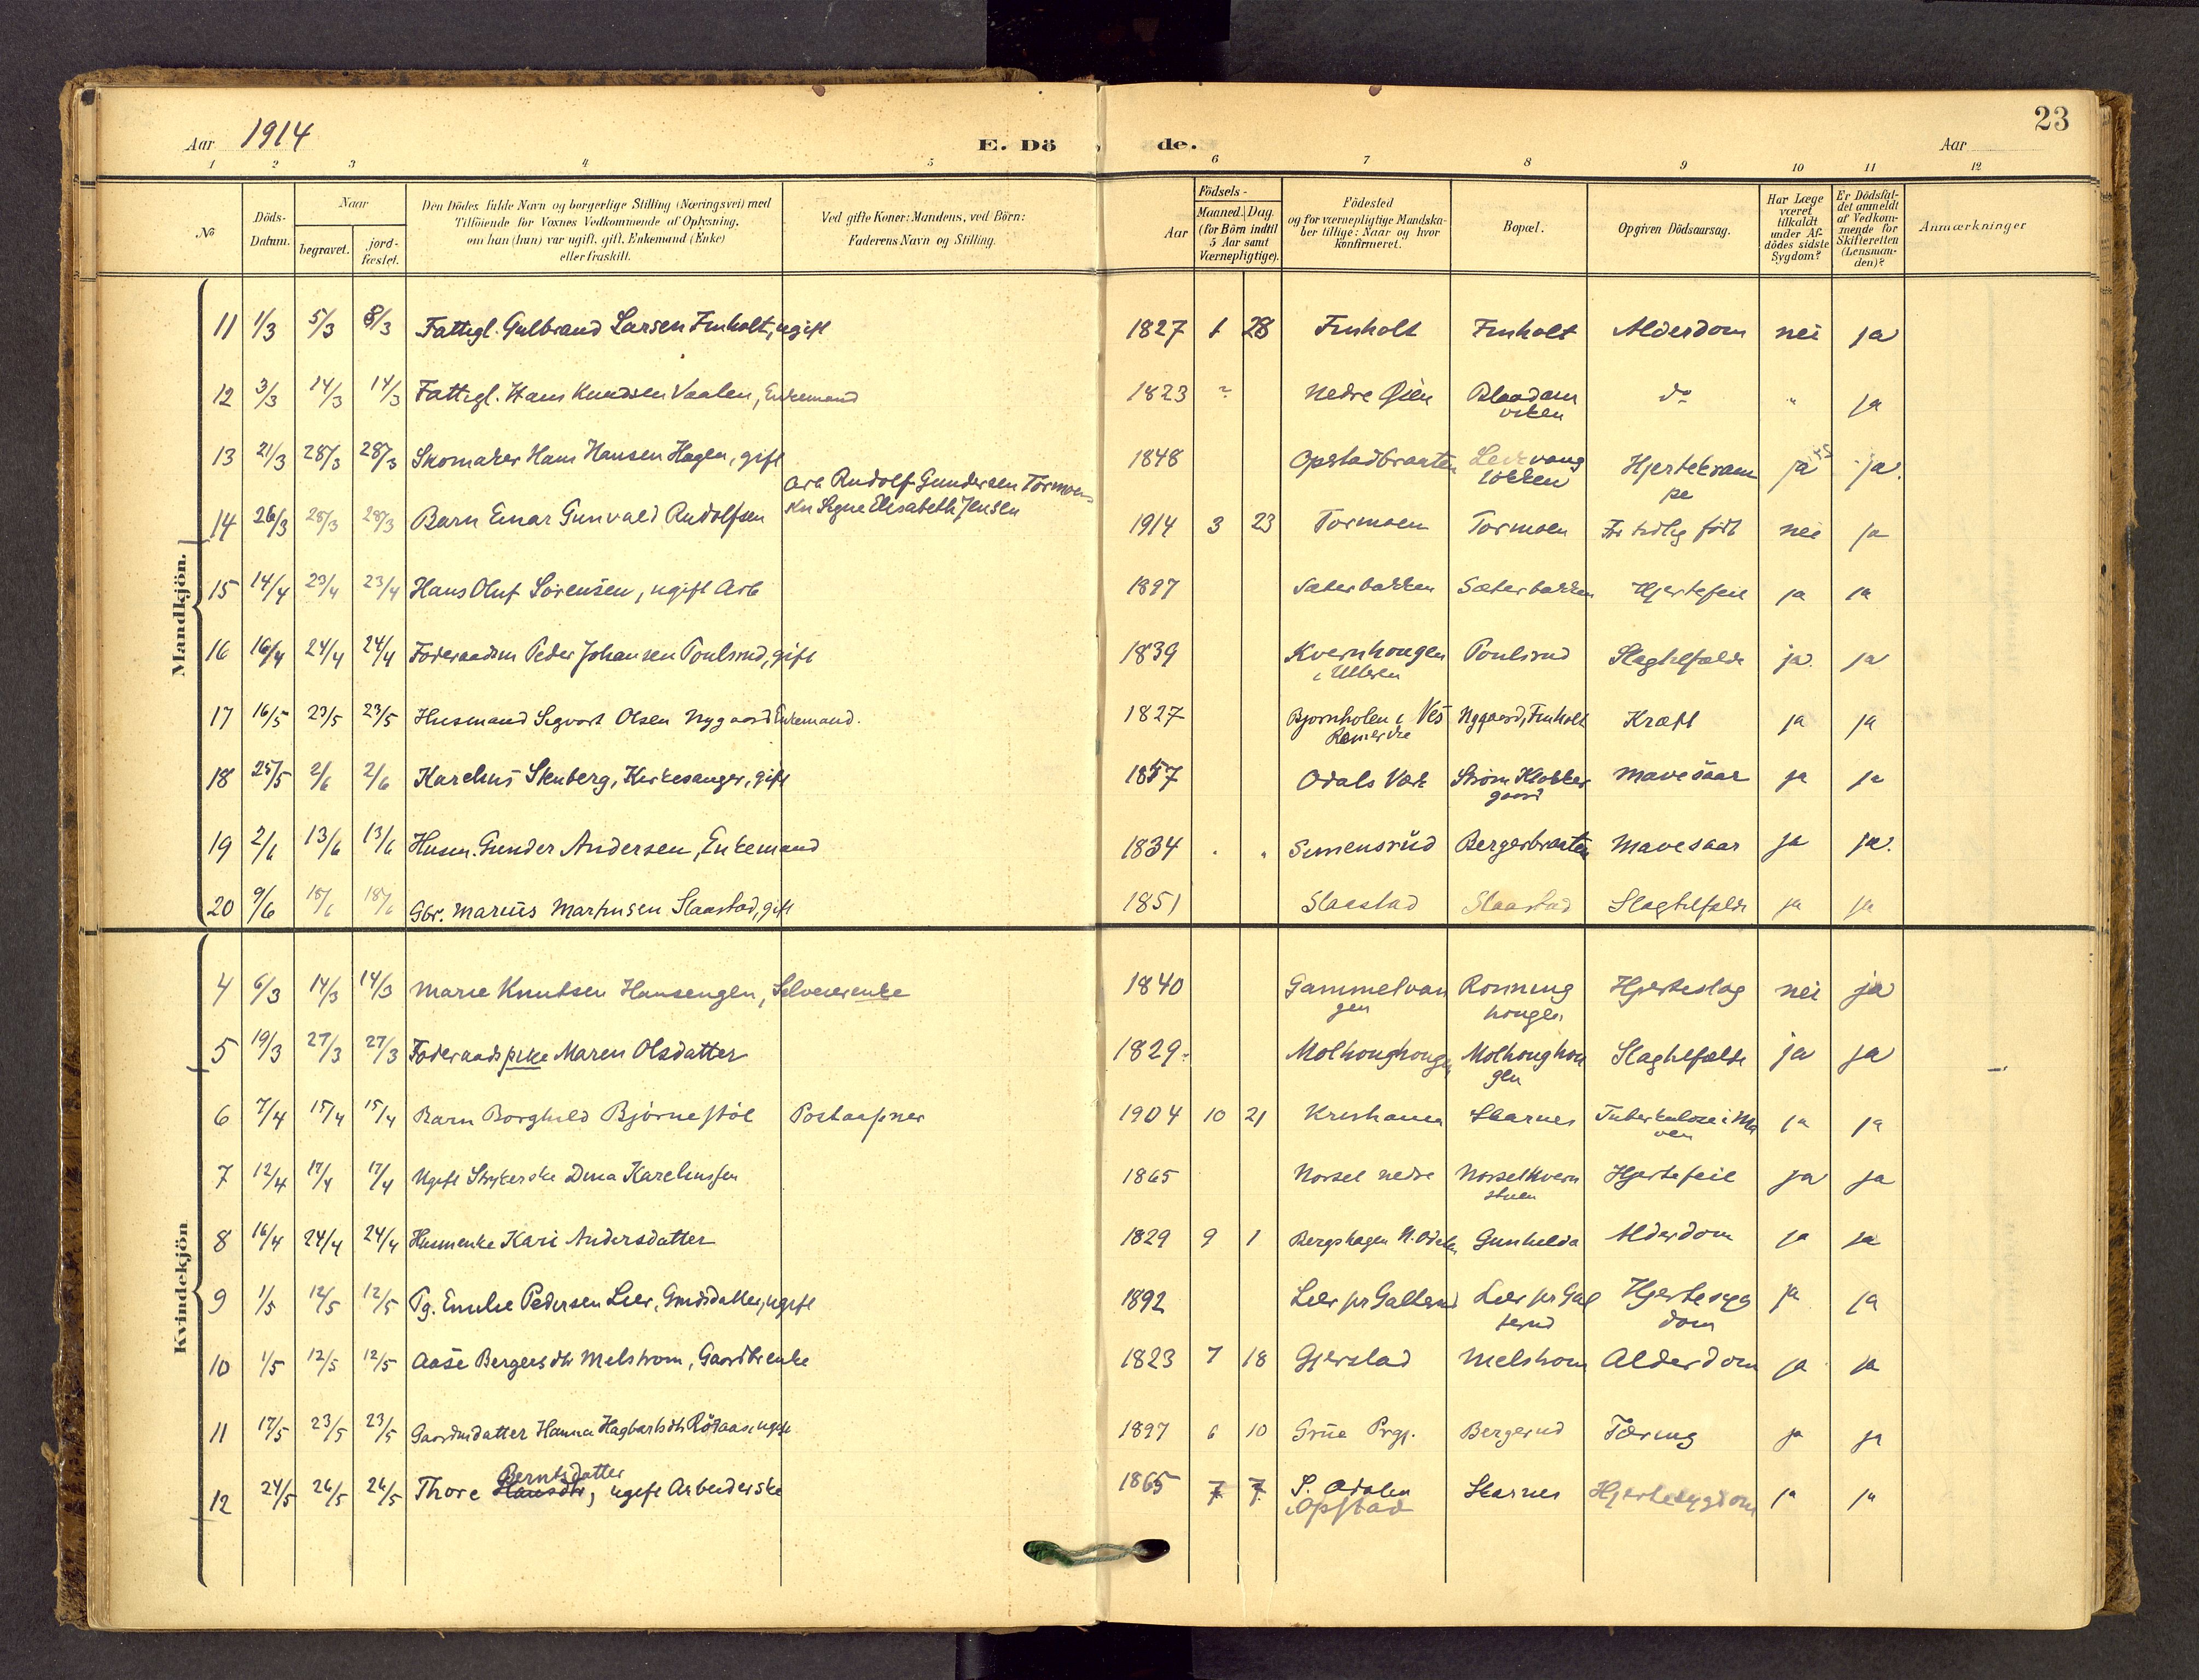 Aar 1914
E. Dö
de.
Aar
23
1 2 3 4 5 6 7 8 9 10 11 12
No
Döds-Datum.
Naar
begravet.
jord-fæstet.
Den Dödes fulde Navn og borgerlige Stilling (Næringsvei) med
Tilföiende for Voxnes Vedkommende af Oplysning,
om han (hun) var ugift, gift, Enkemand (Enke)
eller fraskilt.
Ved gifte Koner: Mandens, ved Börn:
Faderens Navn og Stilling.
Aar
Födsels-
Maaned. Dag.
(for Börn indtil
5 Aar samt
Værnepligtige).
Födested
og for værnepligtige Mandska-
ber tillige: Naar og hvor
konfirmeret.
Bopæl.
Opgiven Dödsaarsag.
Har Læge
været
tilkaldt
under Af-
dödes sidste
Sygdom?
Er Dödsfal-
det anmeldt
af Vedkom-
mende for
Skifteretten
(Lensman-
den)?
Anmærkninger
Mandkjön.
11 1/3 5/3 8/3 Fattigl. Gulbrand Larsen Finholt, ugift 1827 1 28 Finholt Finholt Alderdom nei ja
12 3/3 14/3 14/3 Fattigl. Hans Knudsen Vaalen, Enkemand 1823 Nedre do " ja
13 21/3 28/3 28/3 Skomaker Hans Hansen Hagen, gift 1848 Opstadbraaten Hjertekram ja ja.
løkken pe
Arb Rudolf Gundersen Tormoen
14 26/3 28/3 28/3 Barn Einar Gunvald Rudolfsen Kn Signe Elisabeth Jensen 1914 3 23 Tormoen Tormoen For tidlig født nei ja
15 14/4 23/4 23/4 Hans Oluf Sørensen, ugift Arb 1897 Sæterbakken Sæterbakken Hjertefeil ja ja
16 16/4 24/4 24/4 Føderaadsm Peder Johansen Poulsrud, gift 1839 Kvernhougen Poulsrud Slagtilfælde ja. ja
i Ulleren
17 16/5 23/5 23/5 Husmand Sigvart Olsen Nygaard Enkemand. 1827 Bjørnholen i Ves Nygaard, Finholt Kræft ja ja
18 25/5 2/6 2/6 Karelius Stenberg, Kirkesanger, gift 1857 Odals Værk Strøm Klokker Mavesaar ja ja
gaard
19 2/6 13/6 13/6 Husm. Gunder Andersen, Enkemand 1834 Simensrud Bergerbraaten Mavesaar ja ja.
20 9/6 18/6 18/6 Gbr. Marius Martinsen Slaastad, gift 1851 Slaastad Slaastad Slagtilfælde ja ja
Kvindekjön
4 6/3 14/3 14/3 Marie Knutsen Hansengen, Selveierenke 1840 Gammelvan Rønning Hjerteslag nei ja
gen hougen
5 19/3 27/3 27/3 Føderaadspike Maren Olsdatter 1829. Molhonghougen Molhonghou Slagtilfælde ja ja
gen
6 7/4 15/4 15/4 Barn Borghild Bjørnestøl Postaapner 1904 10 21 Kristiania Skarnes Tuberkulose i Ma ja ja
ven
7 12/4 17/4 17/4 Ugift Strykerske Dina Kareliussen 1865 Norsel nedre Norselkvern Hjertefeil ja ja
stuen
8 16/4 24/4 24/4 Husmenke Kari Andersdatter 1829 9 1 Bergshagen N. Odalen Gunhilda Alderdom ja ja
9 1/5 12/5 12/5 Pg. Emilie Pedersen Lier, Gmdsdatter, ugift 1892 Lier pr Galterud Lier pr Gal Hjertesyg ja ja
terud dom
10 1/5 12/5 12/5 Aase Bergersdtr Melstrøm, Gaardbrenke 1823 7 18 Gjerstad Melstrøm Alderdom ja ja
11 17/5 23/5 23/5 Gaardmdatter Hanna Hagbartsdtr Røtaas, ugift 1897 6 10 Grue Prgj. Bergerud Tæring ja ja
Berntsdatter
12 24/5 26/5 26/5 Thore Hansdtr, ugift Arbeiderske 1865 7 7 S. Odalen Skarnes Hjertesygdom ja ja
i Opstad